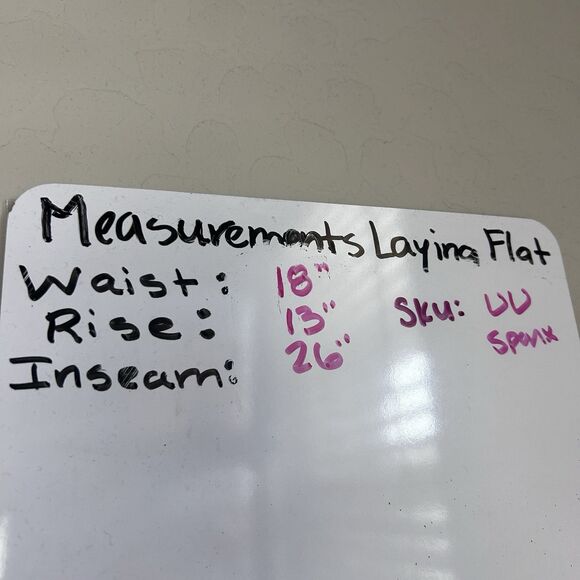 Measurements Laying Flat
Waist: 18"
Rise: 13" SKU: UU
Inseam: 26" Spanx